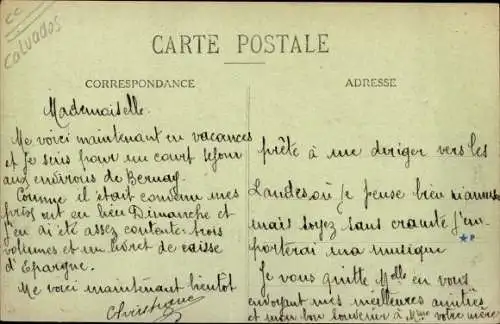 cc
Calvados
CARTE POSTALE
CORRESPONDANCE
ADRESSE
Mademoiselle.
Me voici maintenant en vacances
et Je suis pour un court séjour
aux environs de Bernay.
Comme il était convenu mes
prix ont eu lieu Dimanche et
j'en ai été assez contente: trois
volumes et un livret de caisse
d'Epargne.
Me voici maintenant bientôt
Christiane
prête à me diriger vers les
Landes, où Je pense bien m'amuser
mais soyez sans crainte J'em-
porterai ma musique
Je vous quitte Melle en vous
envoyant mes meilleures amitiés
et mon bon souvenir à Mme votre mère